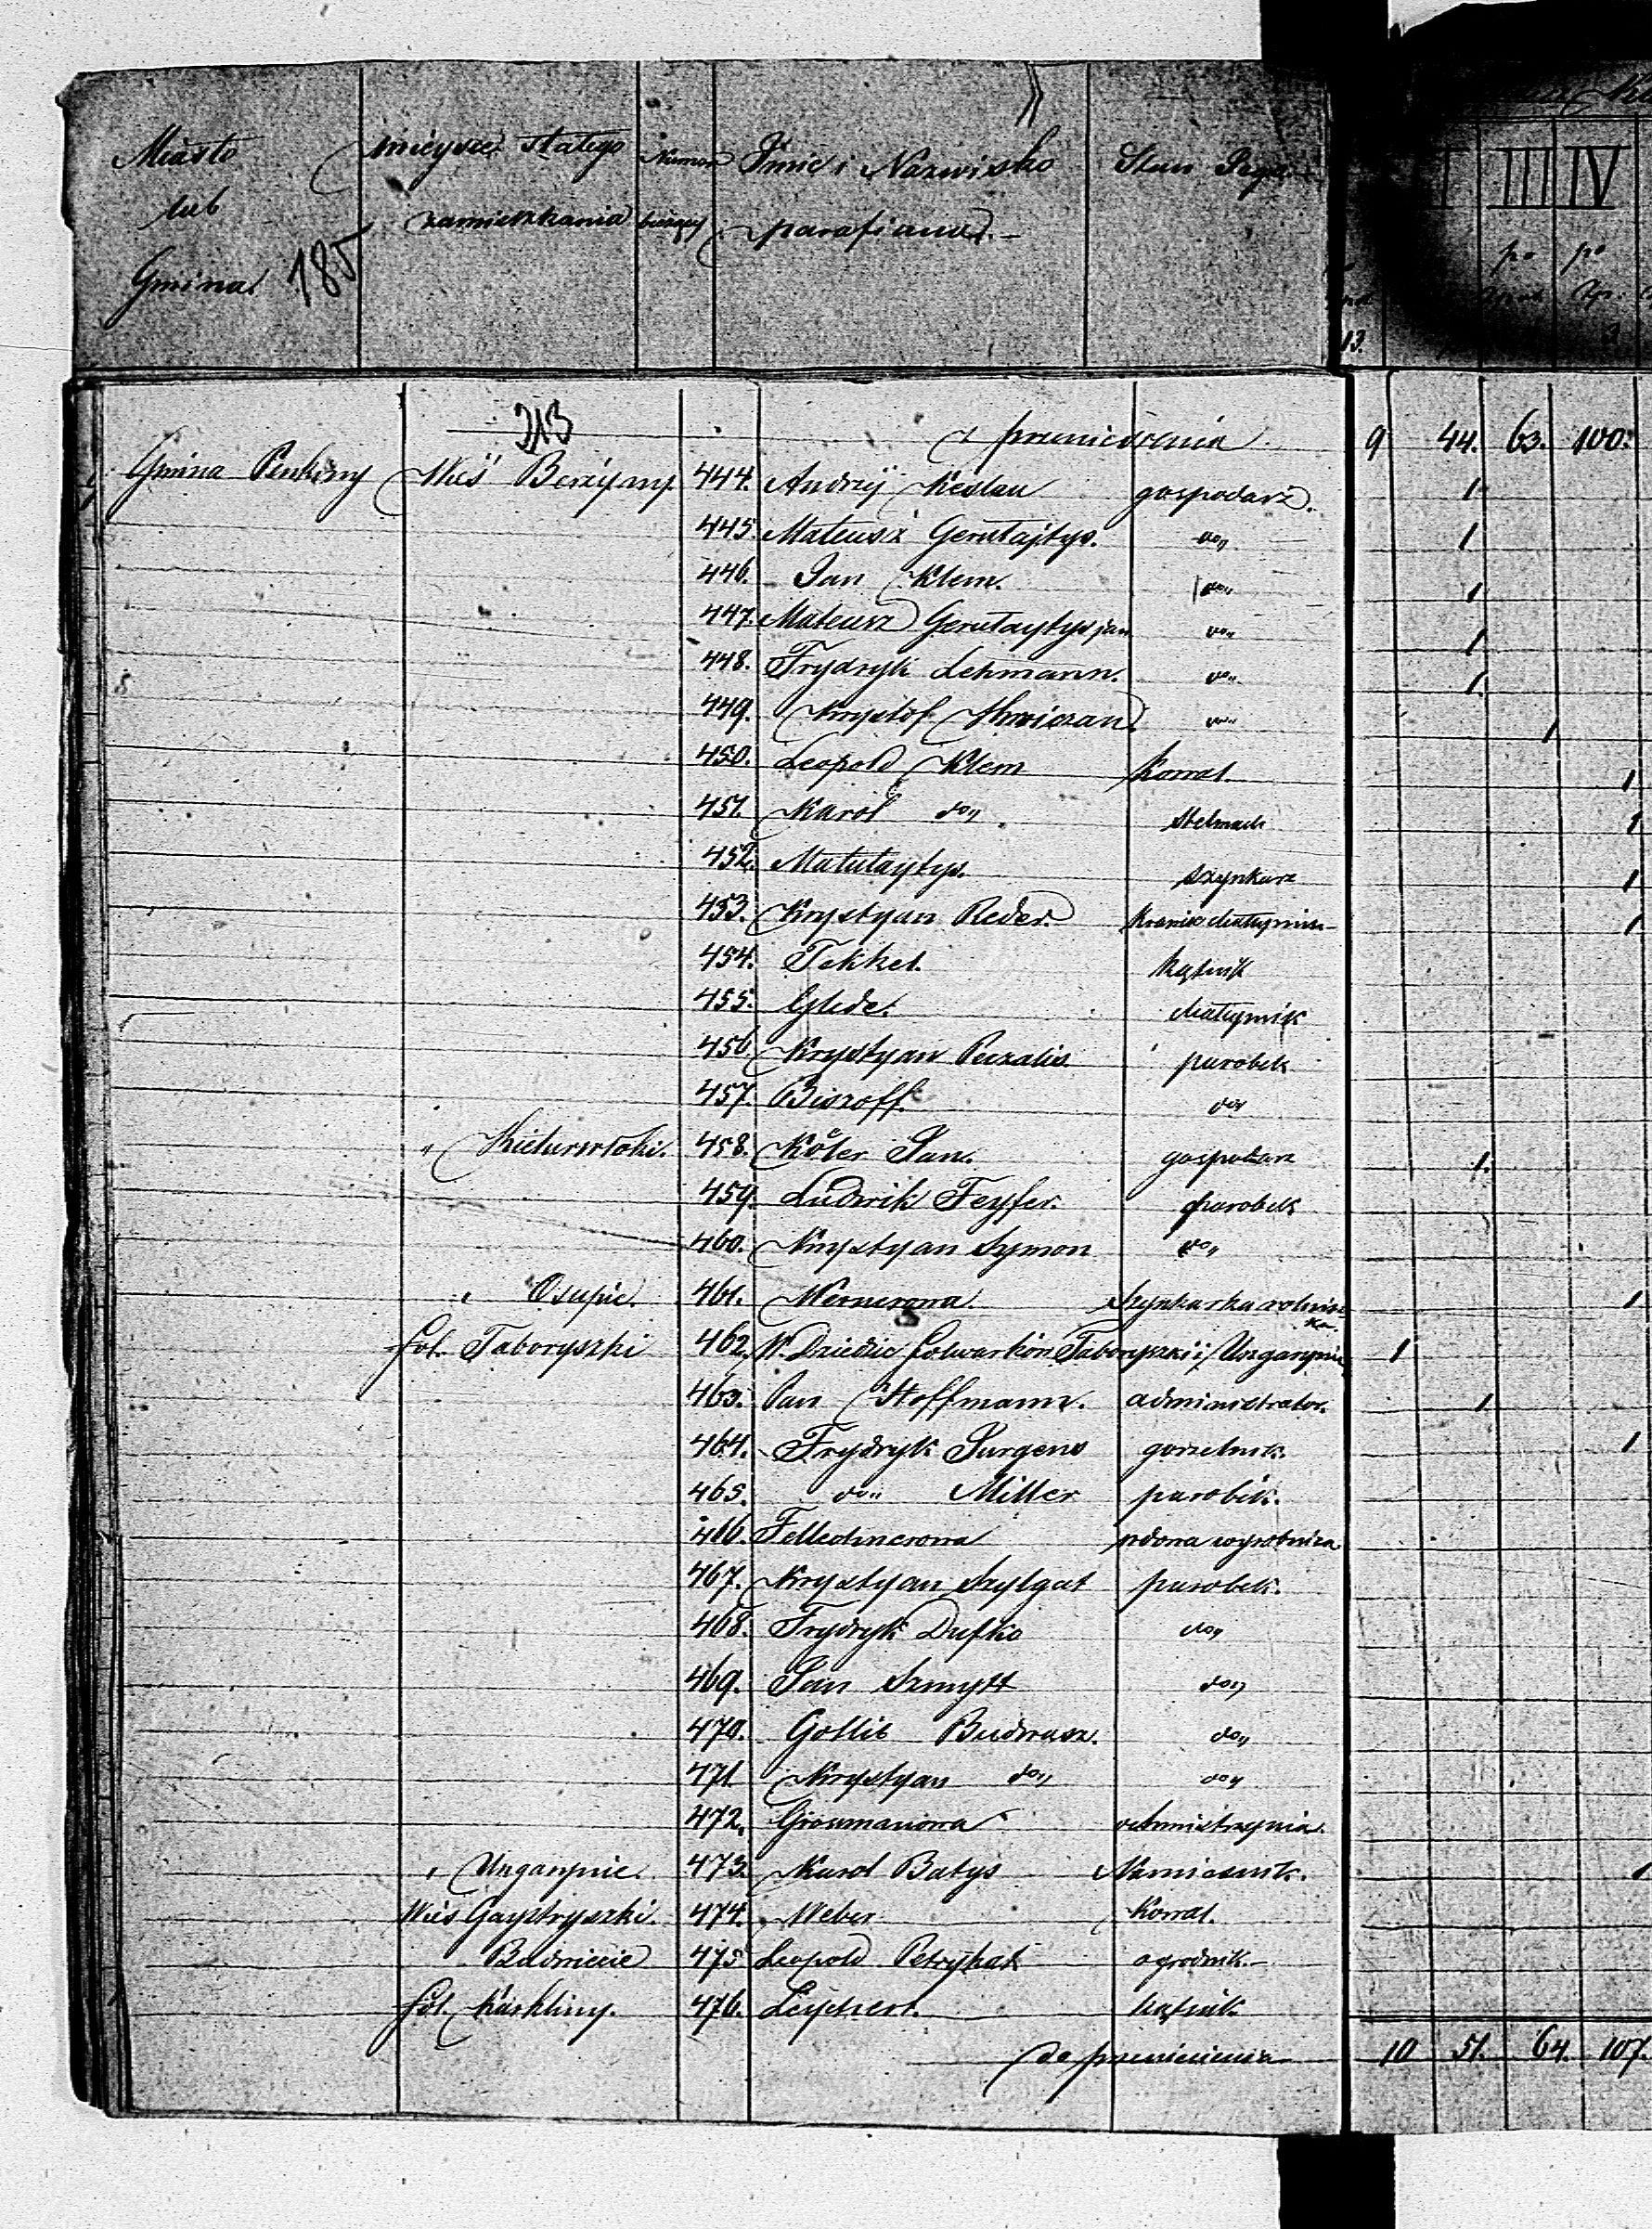 Miasto lub Gmina 185
mieysce stałego zamieszkania
Numer bieżący
Imie i Nazwisko parafianina
Stan
III IV
po po
13.
213
z przeniesienia 9 44. 63. 100.
Gmina Penkiny Wieś Berżyny 444. Andrzy Keslau gospodarz. 1
445. Mateusz Gerutajtys. do" 1
446. Jan Klem. do" 1
447. Mateusz Gerutaytys jun do" 1
448. Frydryk Lehmann. do" 1.
449. Krysztof do" 1
450. Leopold Klem Kowal. 1
451. Karol do" Stelmach 1
452. Matutaytys. szynkarz 1
453. Krystyan Reder. 1
454. Tekkel. kątnik
455. Glede. chałupnik
456. Krystyan Peczalis parobek
457. Biszoff. do"
" 458. Köler Jan. gospodarz 1.
459. Ludwik Feyfer. parobek
460. Krystyan Szymon do"
" Osupie. 461. Wernerowa. Szynkarka 1
fol. Taboryszki 462. W. Dziedzic folwarków Taboryszki i Ungarynie 1
463. Pan Hoffmann. administrator. 1
464. Frydryk Jurgens gorzelnik. 1
465. do" Miller parobek.
466. wdowa wyrobnica
467. Krystyan Szylgat parobek.
468. Frydryk Dufke do"
469. Jan Szmytt do"
470. Gottlib Budwasz. do"
471. Krystyan do" do"
472. Grosmanowa ochmistrzynia.
" Ungarynie. 473. Karol Batys Namiesnik. 1
Wieś Gaystryszki. 474. Weber Kowal.
Budwiecie 475 Leopold Petrykat ogrodnik.
fol. Karkliny. 476. Leychert. kątnik
do przeniesienia 10 51. 64. 107.